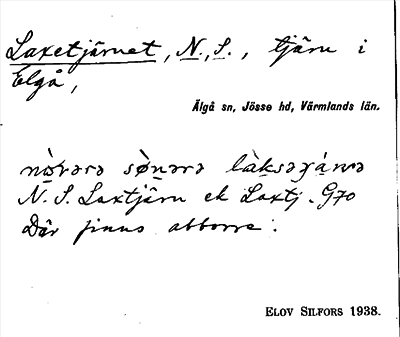 Laxetjärnet, N., S., tjärn i
Elgå,
Älgå sn, Jösse hd, Värmlands län.
N. S. Laxtjärn ek Laxtj. G70
Där finns abborre.
ELOV SILFORS 1938.